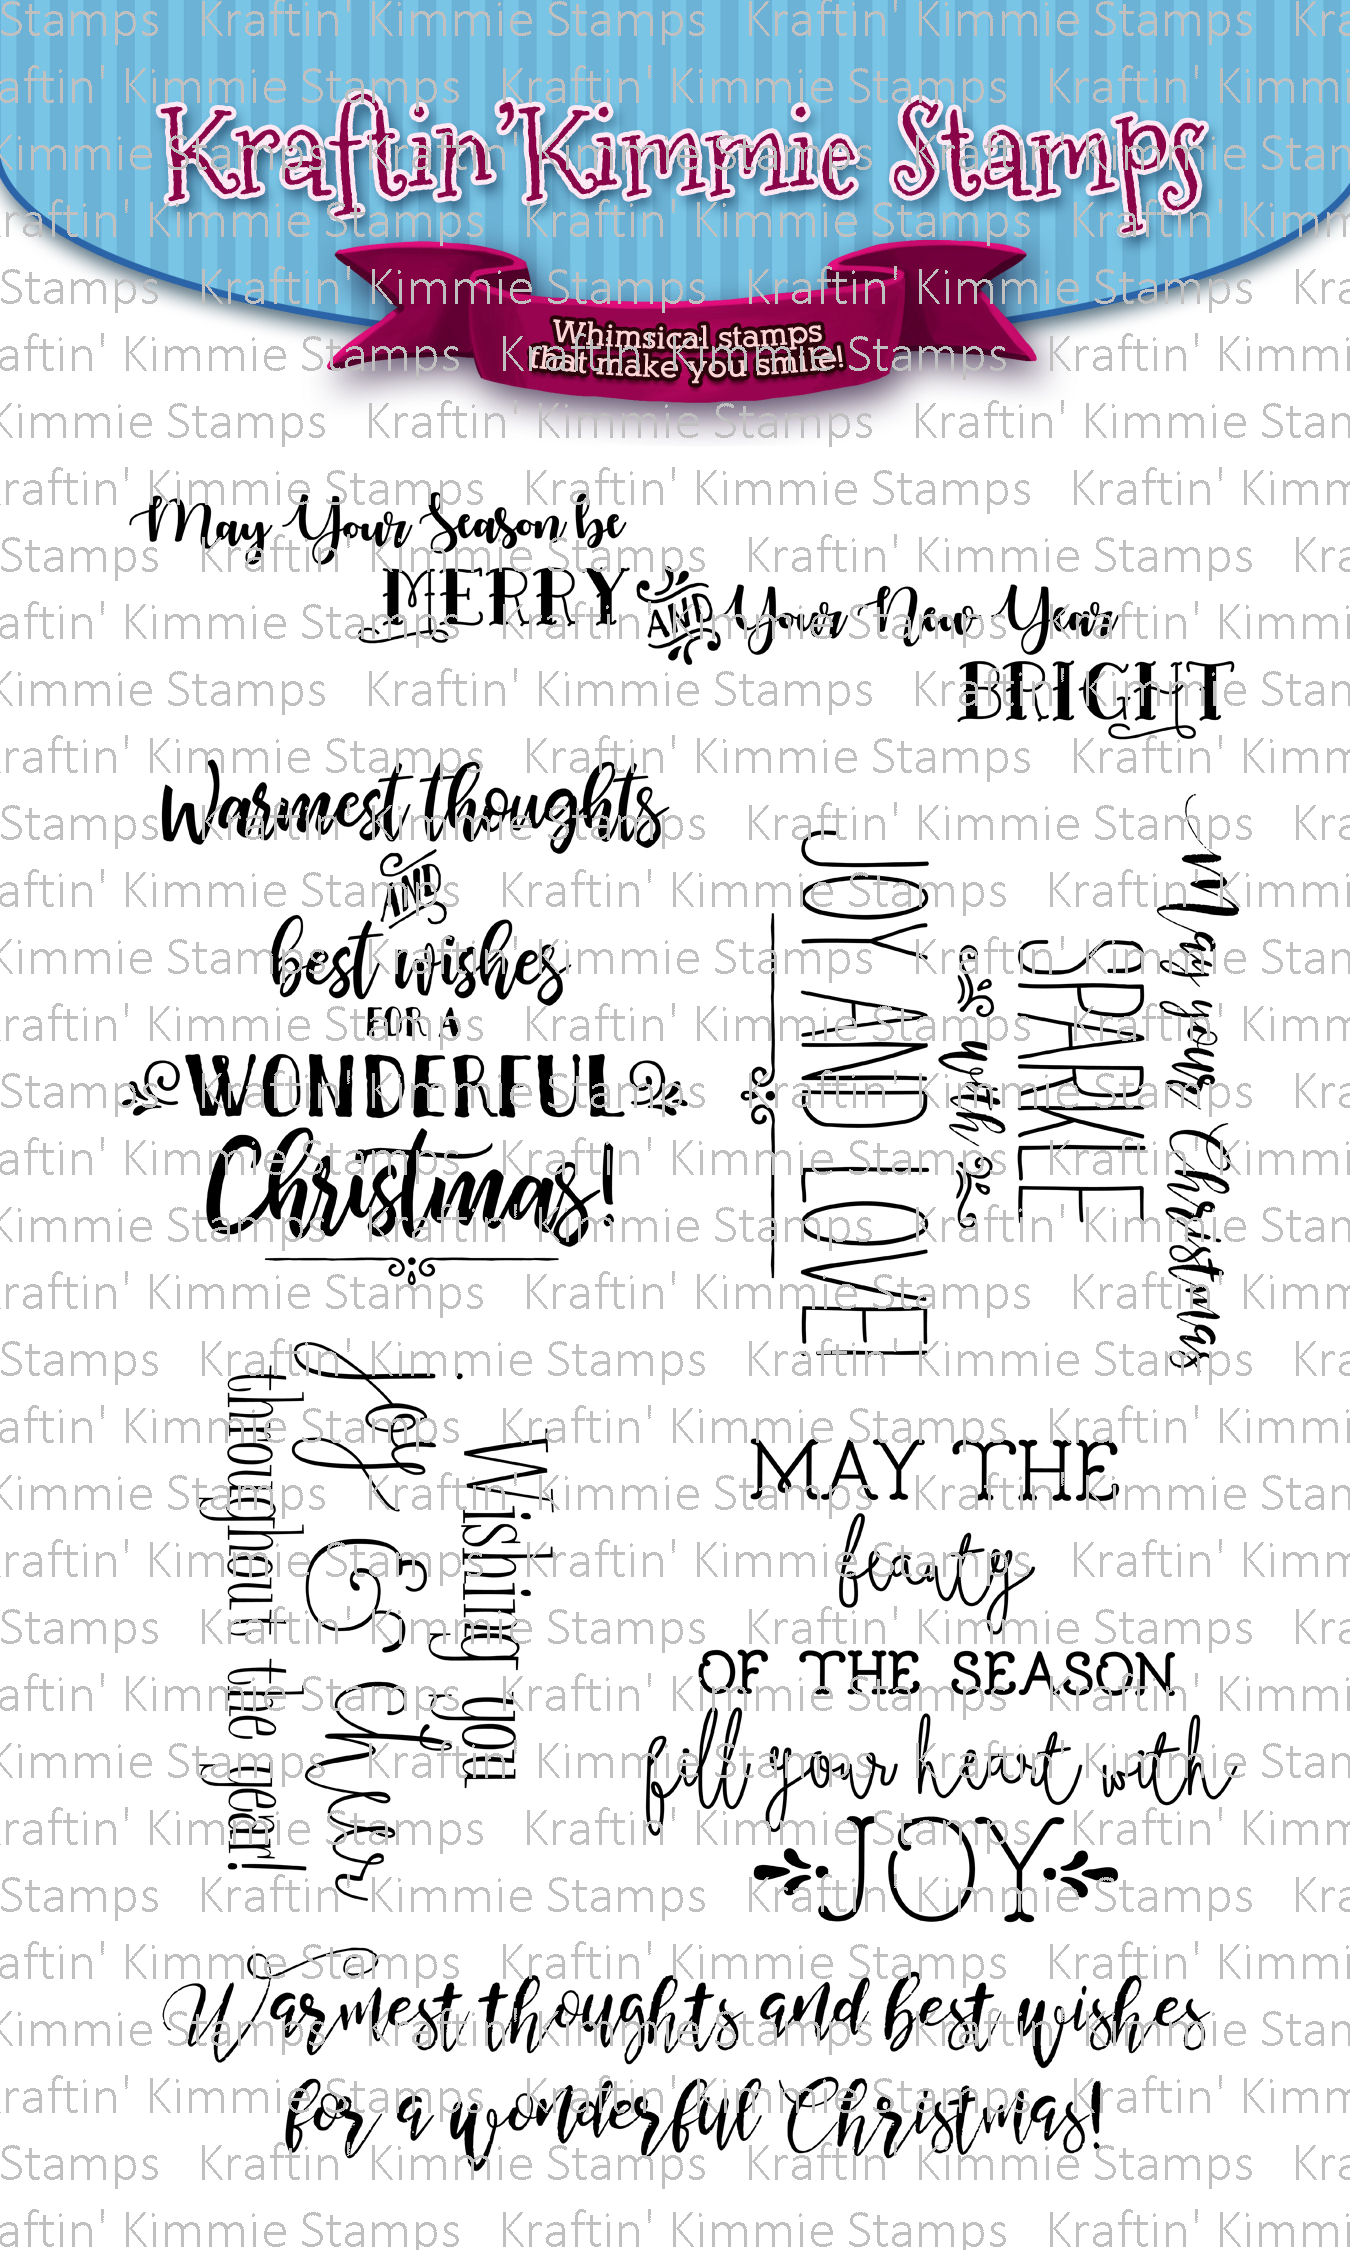 Kraftin' Kimmie Stamps
Whimsical stamps
that make you smile!
May Your Season be
MERRY AND Your New Year
BRIGHT
Warmest thoughts
AND
best wishes
FOR A
WONDERFUL
Christmas!
May your Christmas
SPARKLE
with
JOY AND LOVE
Wishing you
Joy & Cheer
throughout the year!
MAY THE
beauty
OF THE SEASON
fill your heart with
JOY
Warmest thoughts and best wishes
for a wonderful Christmas!